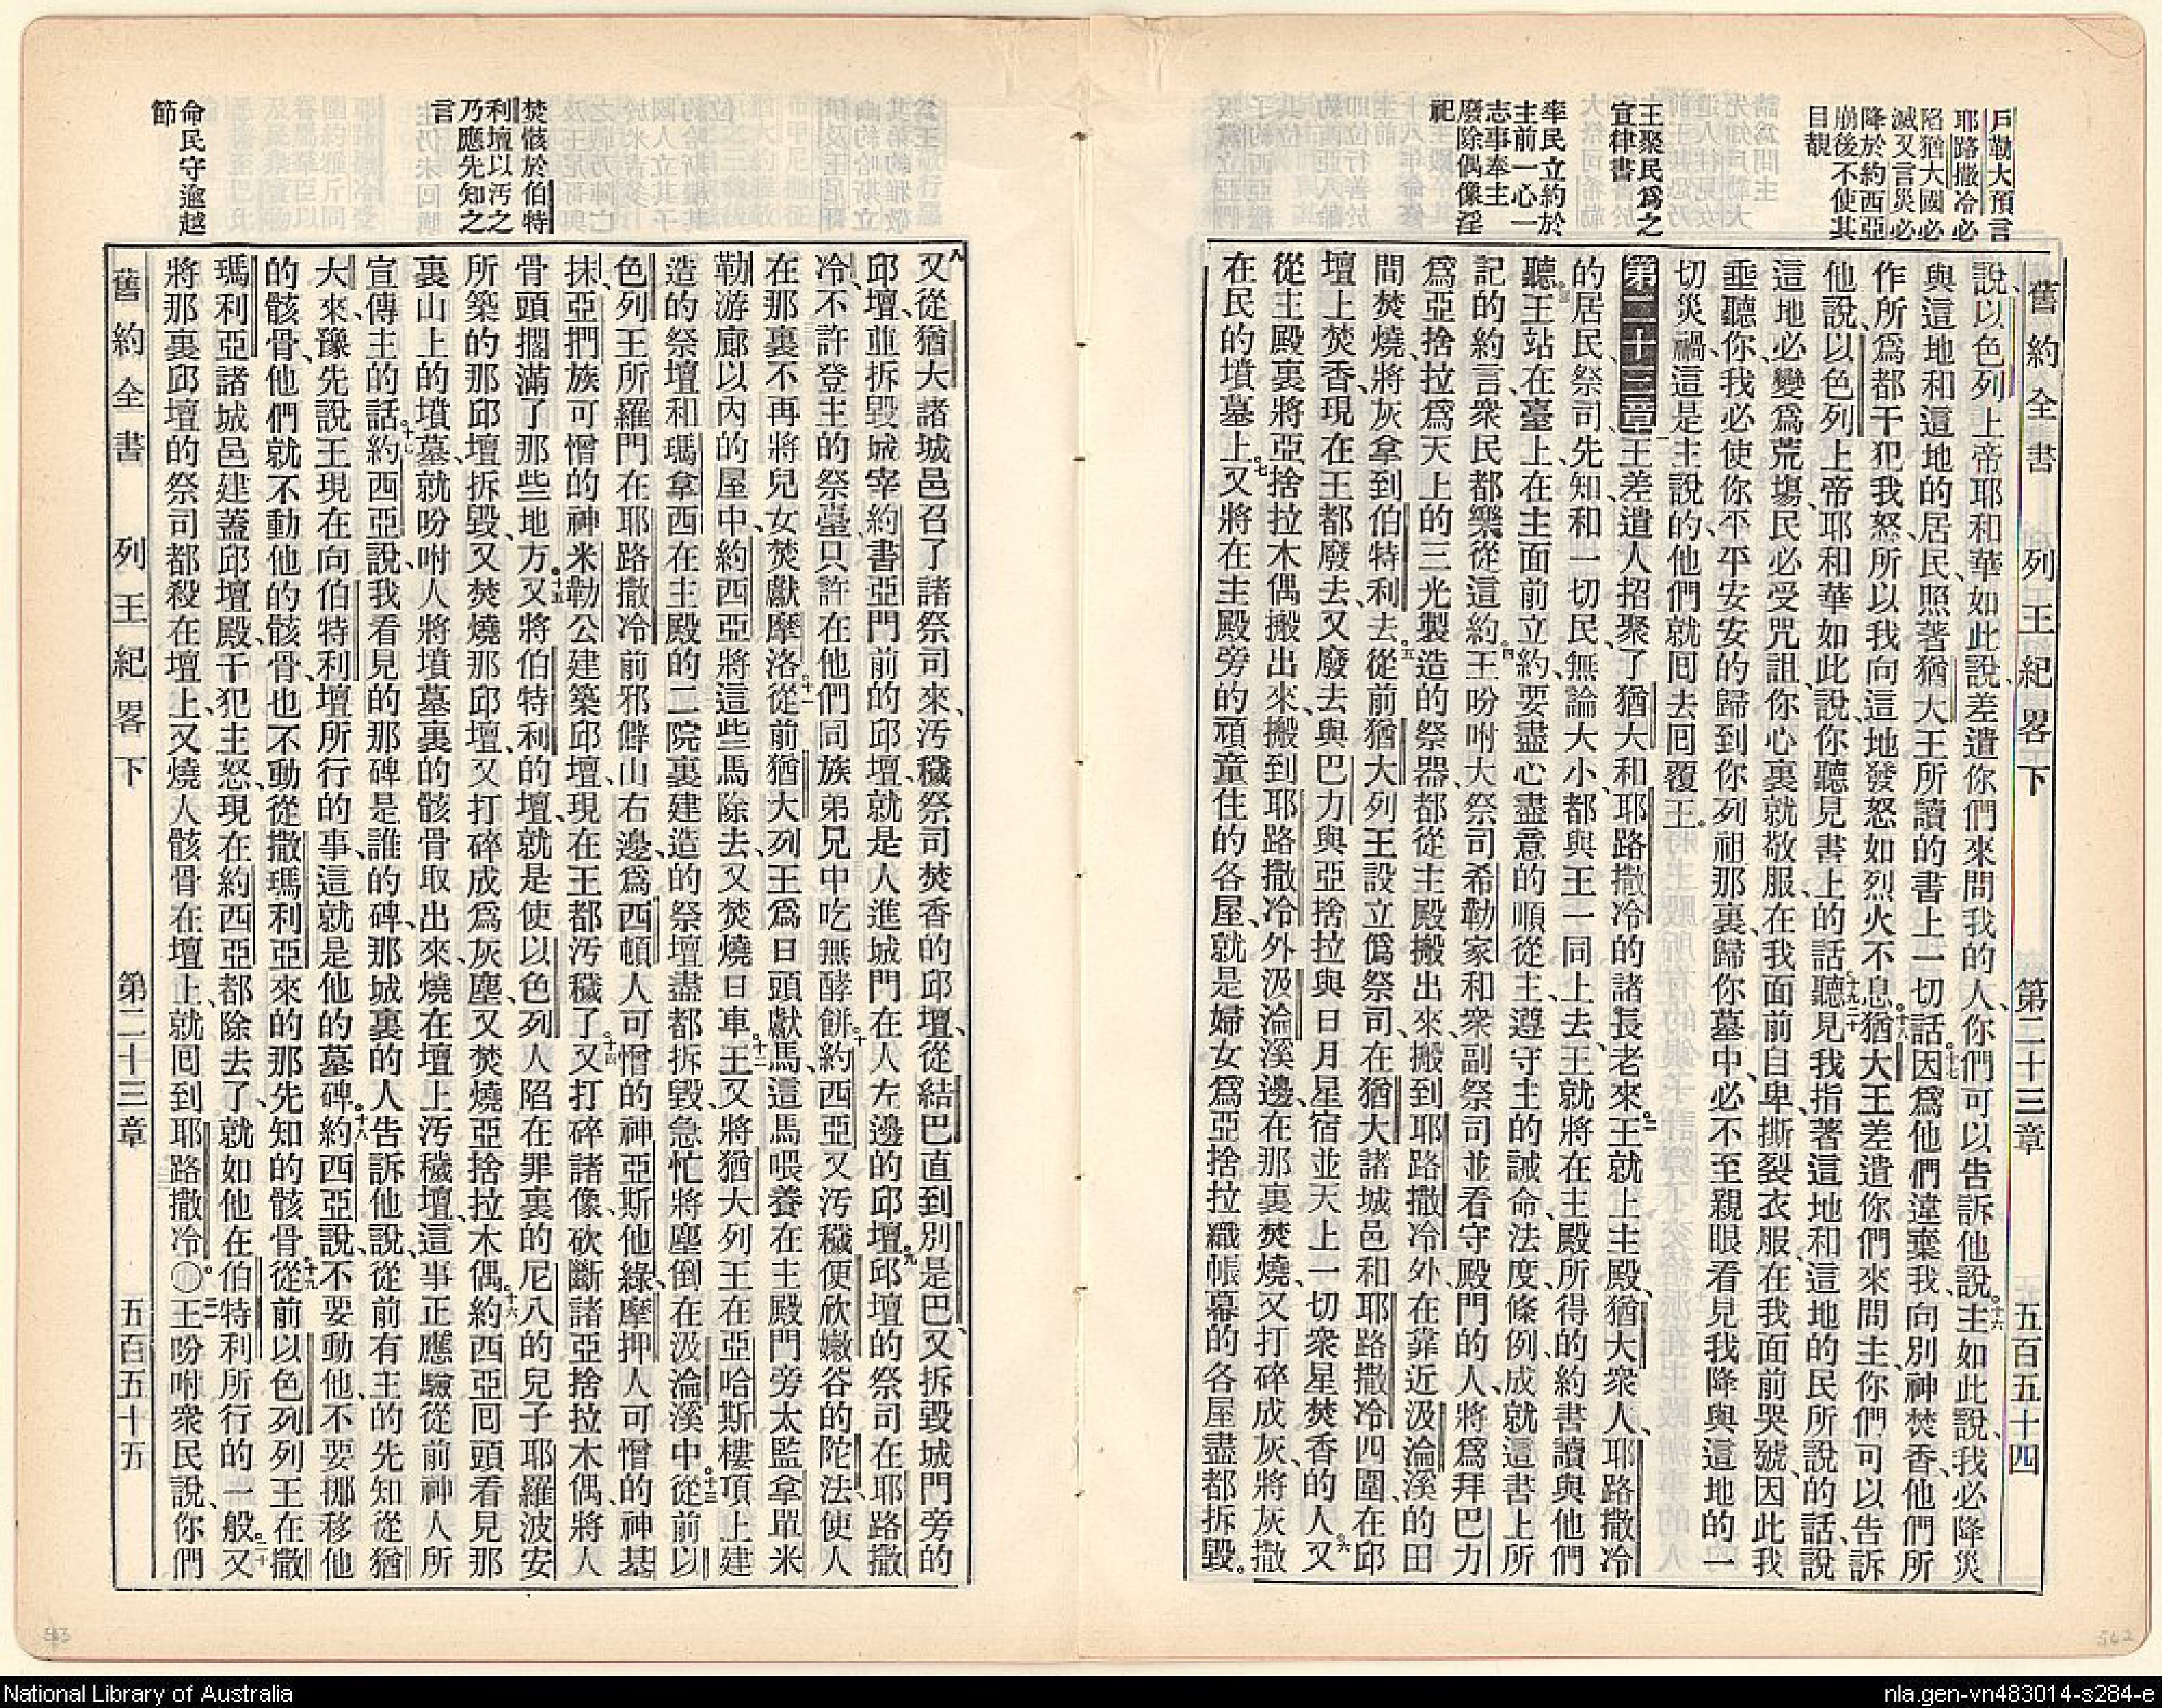 戶勒大預言
耶路撒冷必
陷猶大國必
滅又言災必
降於約西亞
崩後不使其
目覩
王聚民爲之
宣律書
率民立約於
主前一心一
志事奉主
廢除偶像淫
祀
舊約全書 列王紀畧下 第二十三章 五百五十四
說、以色列上帝耶和華、如此說、差遣你們來問我的人、你們可以告訴他說。十六主如此說、我必降災
與這地和這地的居民、照著猶大王所讀的書上一切話。十七因爲他們違棄我、向別神焚香、他們所
作所爲、都干犯我怒、所以我向這地發怒如烈火不息。十八猶大王差遣你們來問主、你們可以告訴
他說、以色列上帝耶和華如此說、你聽見書上的話、十九二十聽見我指著這地和這地的民所說的話、說
這地必變爲荒塲、民必受咒詛、你心裏就敬服、在我面前自卑、撕裂衣服、在我面前哭號、因此我
垂聽你、我必使你平平安安的歸到你列祖那裏、歸你墓中、必不至親眼看見我降與這地的一
切災禍、這是主說的、他們就囘去囘覆王。
第二十三章一王差遣人招聚了猶大和耶路撒冷的諸長老來。二王就上主殿、猶大衆人、耶路撒冷
的居民、祭司、先知、和一切民、無論大小、都與王一同上去、王就將在主殿所得的約書讀與他們
聽。三王站在臺上、在主面前立約、要盡心盡意的順從主、遵守主的誡命法度條例、成就這書上所
記的約言、衆民都樂從這約。四王吩咐大祭司希勒家和衆副祭司、並看守殿門的人、將爲拜巴力
爲亞捨拉爲天上的三光製造的祭器、都從主殿搬出來、搬到耶路撒冷外、在靠近汲淪溪的田
間焚燒、將灰拿到伯特利去。五從前猶大列王設立僞祭司、在猶大諸城邑和耶路撒冷四圍、在邱
壇上焚香、現在王都廢去、又廢去與巴力與亞捨拉與日月星宿並天上一切衆星焚香的人。六又
從主殿裏將亞捨拉木偶搬出來、搬到耶路撒冷外汲淪溪邊、在那裏焚燒、又打碎成灰、將灰撒
在民的墳墓上。七又將在主殿旁的頑童住的各屋、就是婦女爲亞捨拉織帳幕的各屋、盡都拆毀。
焚骸於伯特
利壇以汚之
乃應先知之
言
命民守逾越
節
八又從猶大諸城邑召了諸祭司來、汚穢祭司焚香的邱壇、從結巴直到別是巴、又拆毀城門旁的
邱壇、並拆毀城宰約書亞門前的邱壇、就是人進城門在人左邊的邱壇。九邱壇的祭司在耶路撒
冷、不許登主的祭臺、只許在他們同族弟兄中吃無酵餅。十約西亞又汚穢便欣嫩谷的陀法、使人
在那裏不再將兒女焚獻摩洛。十一從前猶大列王爲日頭獻馬、這馬喂養在主殿門旁太監拿單米
勒游廊以內的屋中、約西亞將這些馬除去、又焚燒日車。十二王又將猶大列王在亞哈斯樓頂上建
造的祭壇、和瑪拿西在主殿的二院裏建造的祭壇、盡都拆毀、急忙將塵倒在汲淪溪中。十三從前以
色列王所羅門在耶路撒冷前邪僻山右邊、爲西頓人可憎的神亞斯他綠、摩押人可憎的神基
抹、亞捫族可憎的神米勒公建築邱壇、現在王都汚穢了。十四又打碎諸像、砍斷諸亞捨拉木偶、將人
骨頭擱滿了那些地方。十五又將伯特利的壇、就是使以色列人陷在罪裏的尼八的兒子耶羅波安
所築的那邱壇拆毀、又焚燒那邱壇、又打碎成爲灰塵、又焚燒亞捨拉木偶。十六約西亞囘頭看見那
裏山上的墳墓、就吩咐人將墳墓裏的骸骨取出來、燒在壇上、汚穢壇、這事正應驗從前神人所
宣傳主的話。十七約西亞說、我看見的那碑是誰的碑、那城裏的人告訴他說、從前有主的先知從猶
大來、豫先說王現在向伯特利壇所行的事、這就是他的墓碑。十八約西亞說、不要動他、不要挪移他
的骸骨、他們就不動他的骸骨、也不動從撒瑪利亞來的那先知的骸骨。十九從前以色列列王在撒
瑪利亞諸城邑建蓋邱壇殿、干犯主怒、現在約西亞都除去了、就如他在伯特利所行的一般。二十又
將那裏邱壇的祭司都殺在壇上、又燒人骸骨在壇上、就囘到耶路撒冷○二一王吩咐衆民說、你們
舊約全書 列王紀畧下 第二十三章 五百五十五
563
562
National Library of Australia
nla.gen-vn483014-s284-e